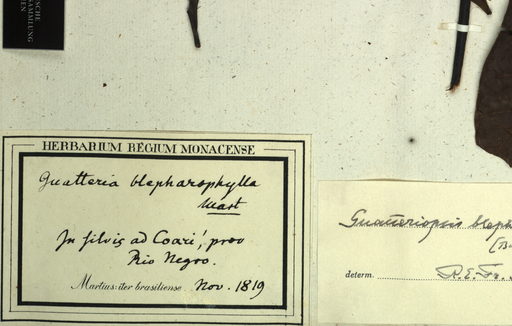 SCHE
SAMMLUNG
EN
HERBARIUM REGIUM MONACENSE
Guatteria blepharophylla
Mart
In silvis ad Coari, prov
Rio Negro.
Martius: iter brasiliense Nov. 1819
Guatteriopsis bleph
(
determ. R. E. Fr.